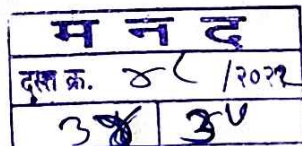 म न द
दस्त क्र. ४८ /२०२२
३४ ३५